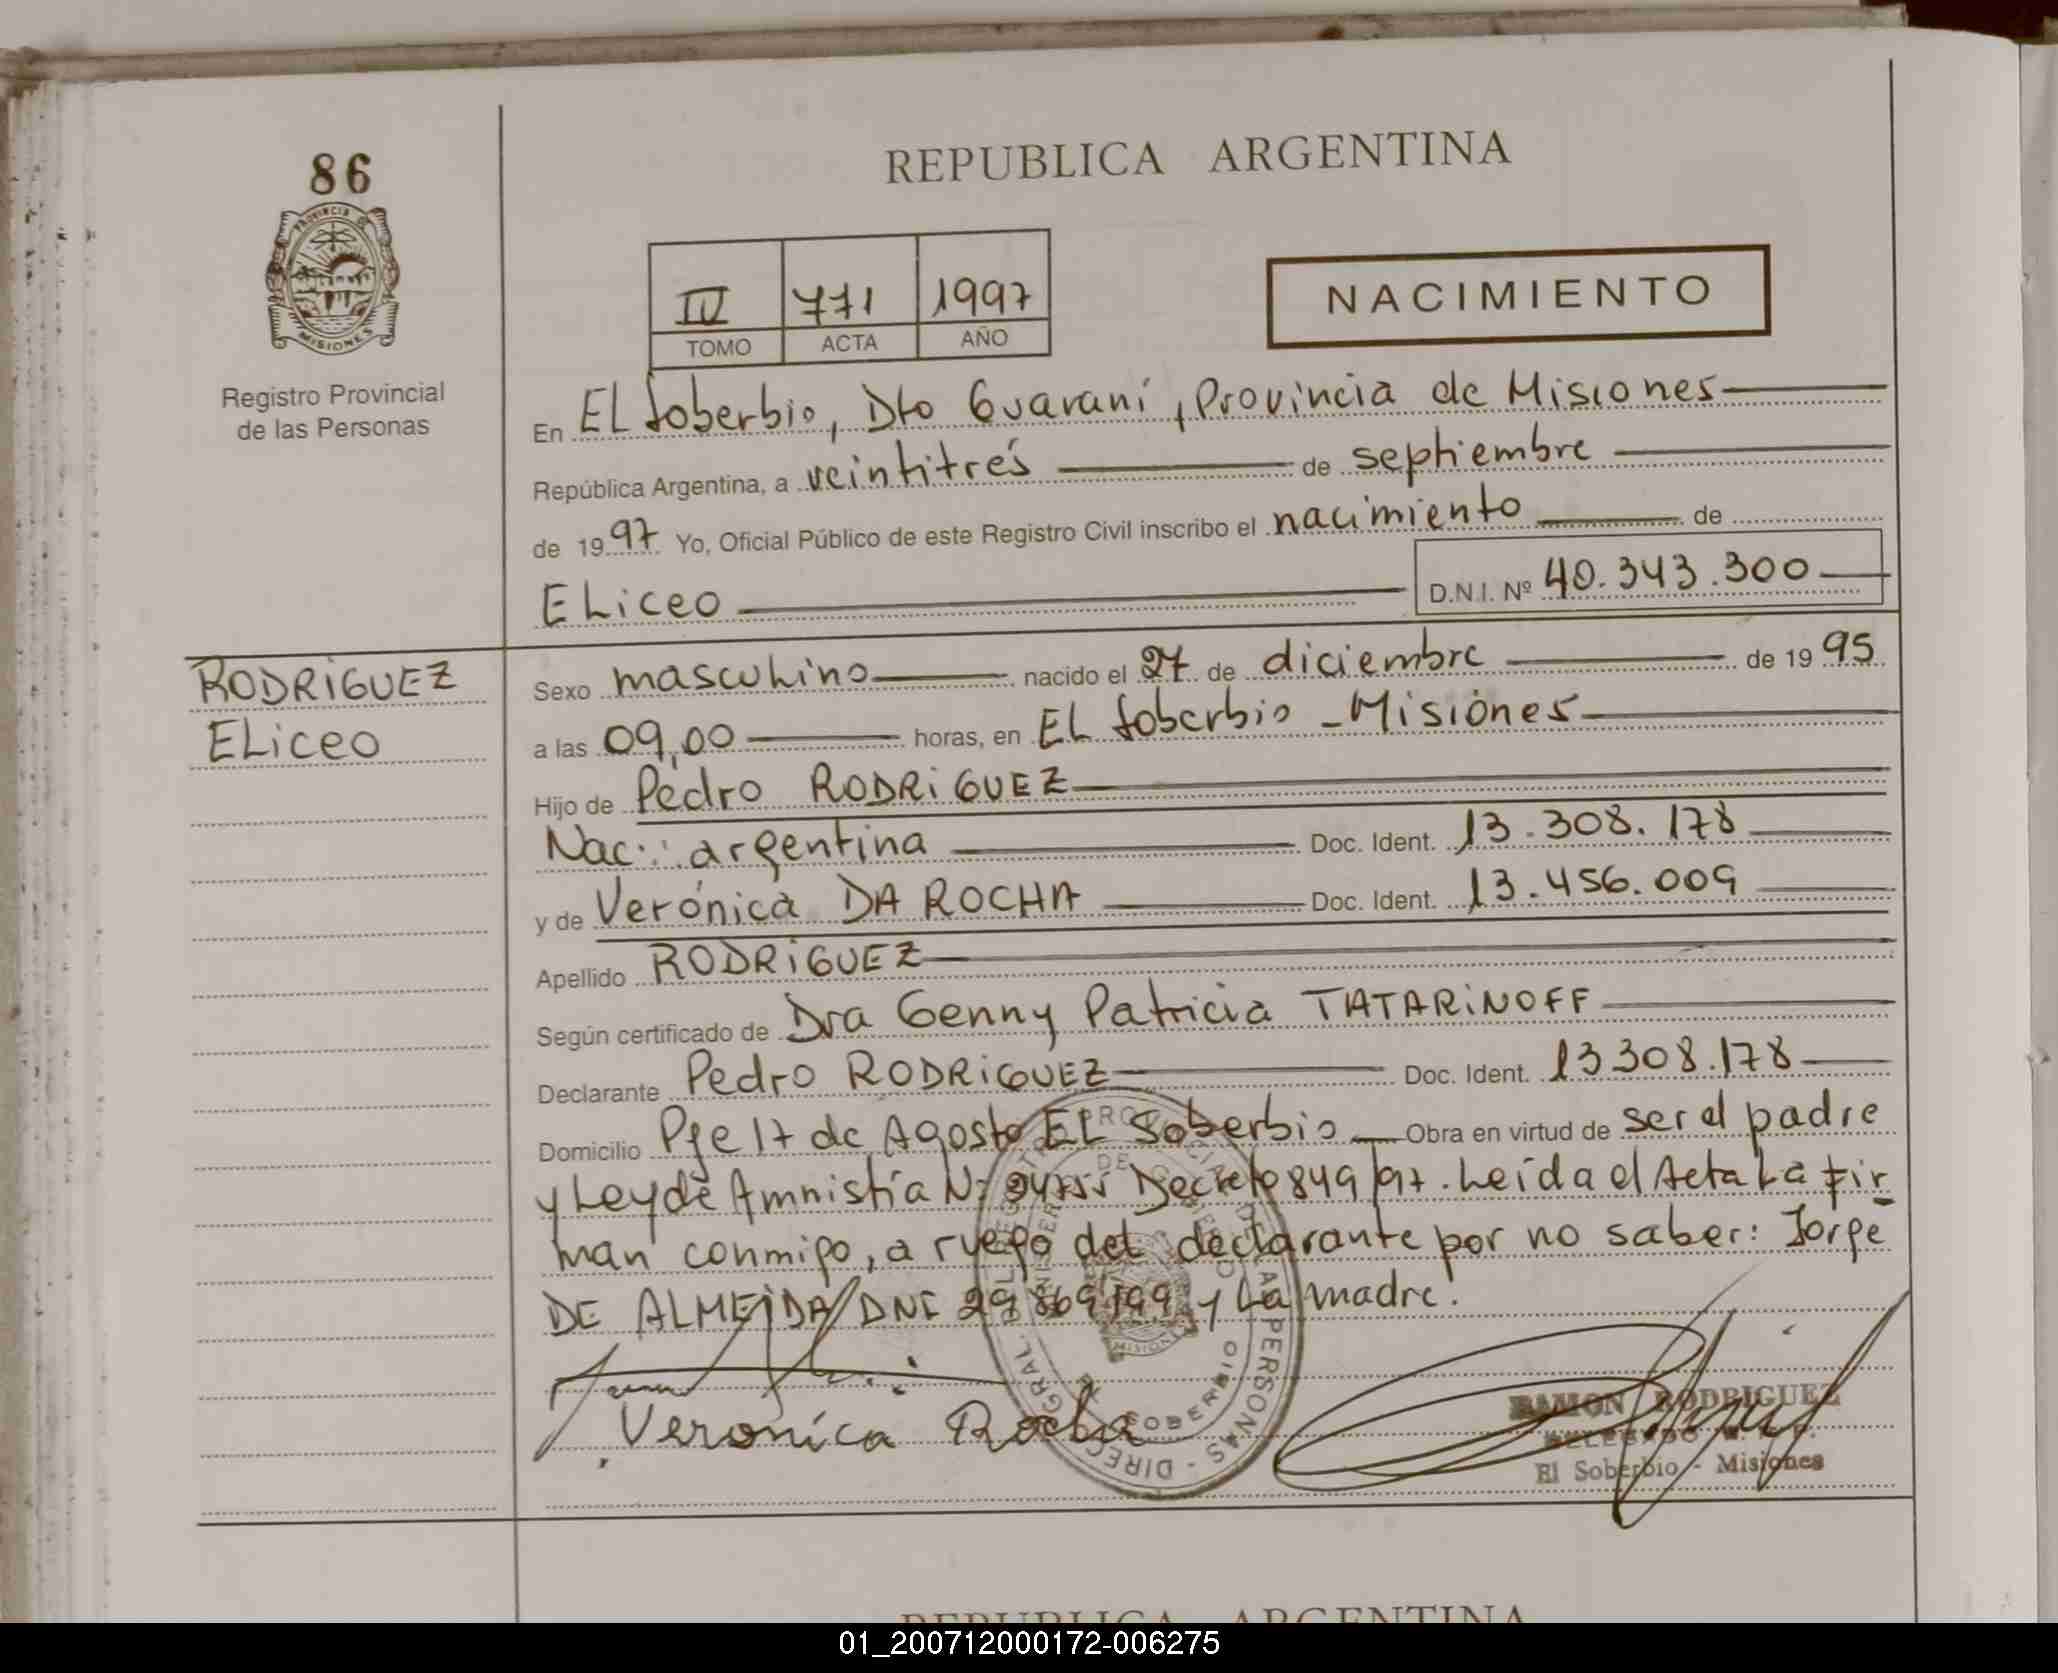 86
PROVINCIA DE
MISIONES
Registro Provincial
de las Personas
REPUBLICA ARGENTINA
IV 771 1997
TOMO ACTA AÑO
NACIMIENTO
En EL Soberbio, Dto Guaraní, Provincia de Misiones
República Argentina, a veintitrés de septiembre
de 1997 Yo, Oficial Público de este Registro Civil inscribo el nacimiento de
ELiceo D.N.I. Nº 40.343.300
RODRIGUEZ
ELiceo
Sexo masculino nacido el 27 de diciembre de 1995
a las 09,00 horas, en EL Soberbio - Misiones
Hijo de Pedro RODRIGUEZ
Nac: argentina Doc. Ident. 13.308.178
y de Verónica DA ROCHA Doc. Ident. 13.456.009
Apellido RODRIGUEZ
Según certificado de Dra Genny Patricia TATARINOFF
Declarante Pedro RODRIGUEZ Doc. Ident. 13308.178
Domicilio Pje 17 de Agosto EL Soberbio Obra en virtud de ser el padre
y Ley de Amnistía Nº Decreto 849/97. Leída el Acta La fir
man conmigo, a ruego del declarante por no saber: Jorge
DE ALMEIDA DNI y La madre.
Veronica Rocha
RAMON RODRIGUEZ
DELEGADO
El Soberbio - Misiones
REPUBLICA ARGENTINA
01_200712000172-006275